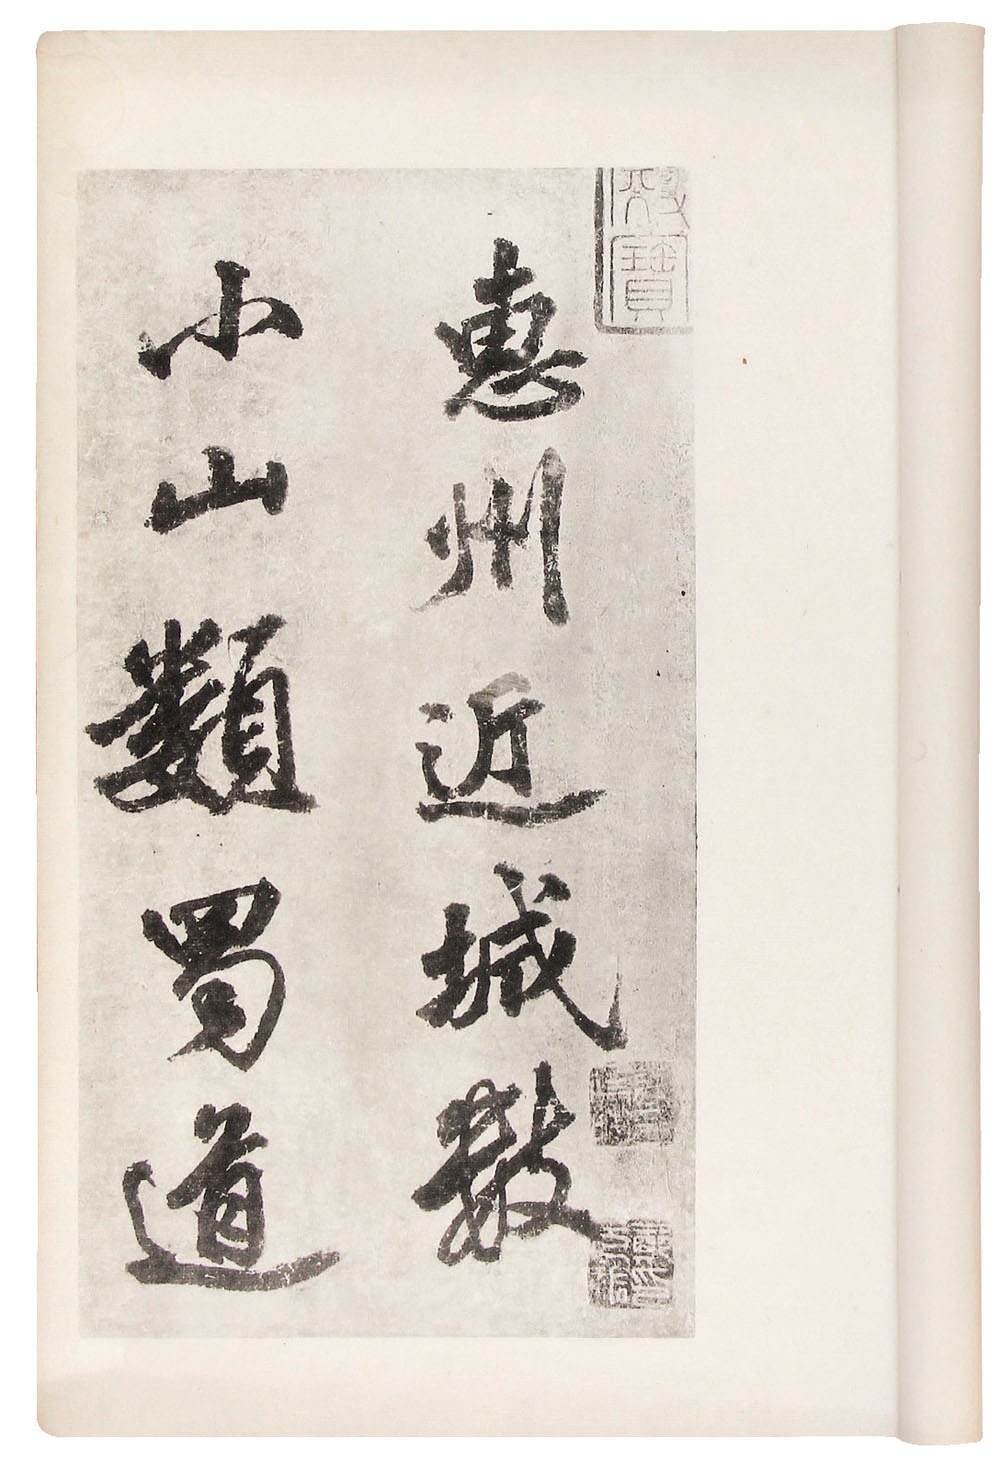 惠州近城數
小山類蜀道
寶